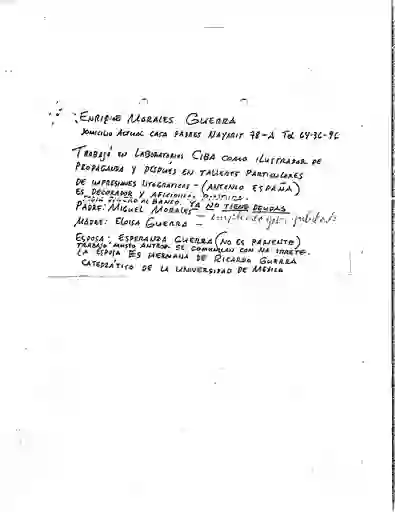 ENRIQUE MORALES GUERRA
DOMICILIO ACTUAL CASA PADRES NAYARIT 78-A Tel
TRABAJÓ EN LABORATORIOS CIBA COMO ILUSTRADOR DE
PROPAGANDA Y DESPUÉS EN TALLERES PARTICULARES
DE IMPRESIONES LITOGRÁFICAS - (ANTONIO ESPAÑA)
ES DECORADOR Y
AL BANCO. YA NO TIENE DEUDAS
PADRE: MIGUEL MORALES - jubilado
MADRE: ELOISA GUERRA -
ESPOSA: ESPERANZA GUERRA (NO ES PARIENTE)
TRABAJÓ MUSEO ANTROP. SE COMUNICAN CON
LA ESPOSA ES HERMANA DE RICARDO GUERRA
CATEDRÁTICO DE LA UNIVERSIDAD DE MÉXICO